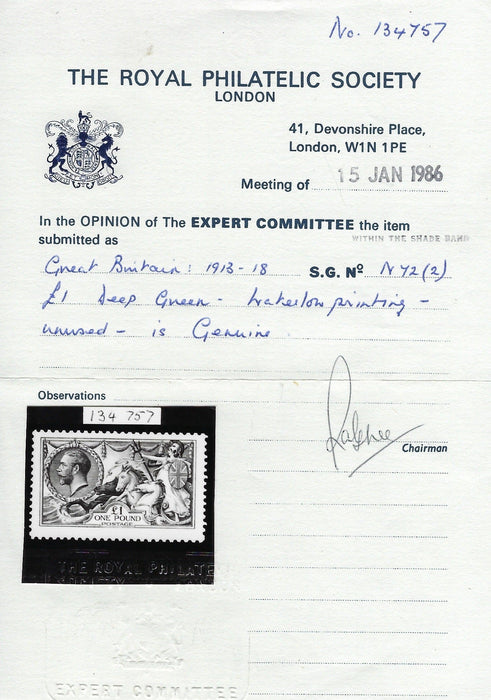 No. 134757
THE ROYAL PHILATELIC SOCIETY
LONDON
41, Devonshire Place,
London, W1N 1PE
Meeting of 15 JAN 1986
In the OPINION of The EXPERT COMMITTEE the item
submitted as WITHIN THE SHADE BAND
Great Britain: 1913-18 S.G. Nº N72(2)
£1 Deep Green - Waterlow printing -
unused - is Genuine
Observations
134 757
Chairman
£1
ONE POUND
POSTAGE
THE ROYAL PHILATE
SOCIETY
EXPERT COMMITTEE